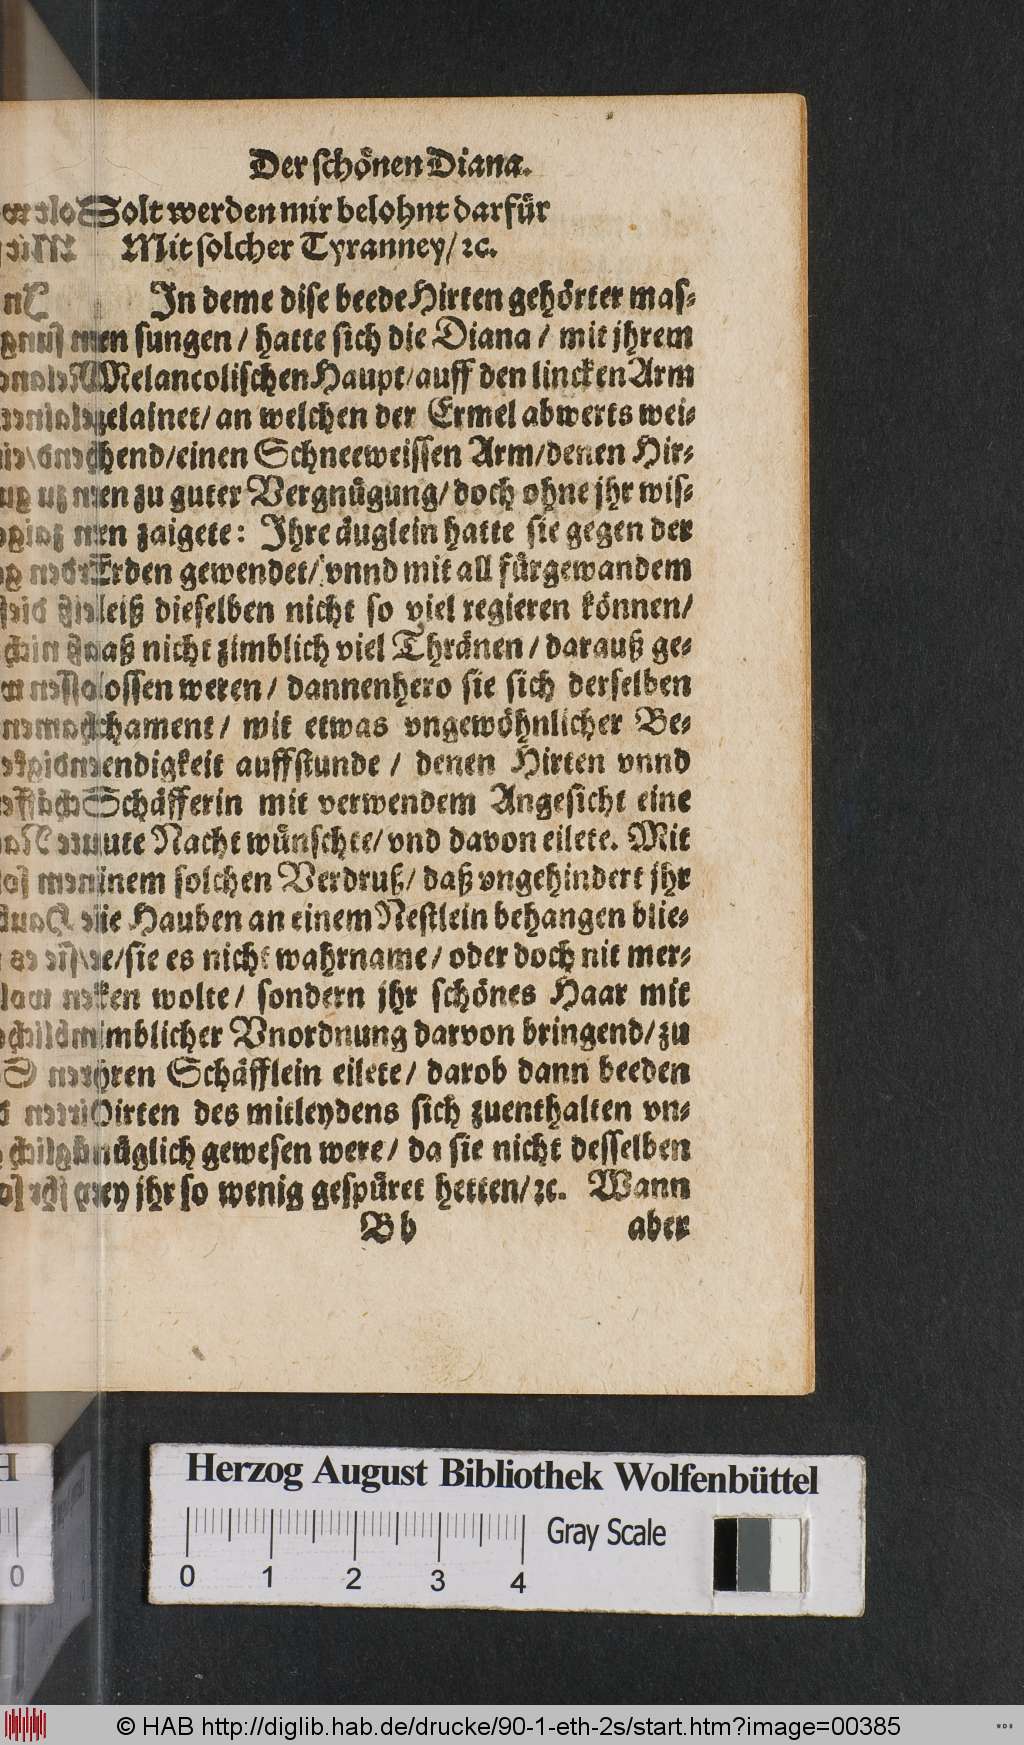 Der schönen Diana.
Solt werden mir belohnt darfür
Mit solcher Tyranney/ ꝛc.
In deme dise beede Hirten gehörter mas-
sen sungen / hatte sich die Diana / mit jhrem
Melancolischen Haupt/ auff den lincken Arm
gelainet/ an welchen der Ermel abwerts wei-
chend/ einen Schneeweissen Arm/ denen Hir-
ten zu guter Vergnügung/ doch ohne jhr wis-
sen zaigete: Ihre äuglein hatte sie gegen der
Erden gewendet/ vnnd mit all fürgewandem
fleiß dieselben nicht so viel regieren können/
daß nicht zimblich viel Thränen / darauß ge-
flossen weren / dannenhero sie sich derselben
schament / mit etwas vngewöhnlicher Be-
hendigkeit auffstunde / denen Hirten vnnd
Schäfferin mit verwendem Angesicht eine
gute Nacht wünschte/ vnd davon eilete. Mit
einem solchen Verdruß/ daß vngehindert jhr
die Hauben an einem Nestlein behangen blie-
be/ sie es nicht wahrname/ oder doch nit mer-
cken wolte/ sondern jhr schönes Haar mit
zimblicher Vnordnung darvon bringend/ zu
jhren Schäfflein eilete / darob dann beeden
Hirten des mitleydens sich zuenthalten vn-
müglich gewesen were / da sie nicht desselben
bey jhr so wenig gespüret hetten/ ꝛc. Wann
B b aber
Herzog August Bibliothek Wolfenbüttel
Gray Scale
0 1 2 3 4
© HAB http://diglib.hab.de/drucke/90-1-eth-2s/start.htm?image=00385